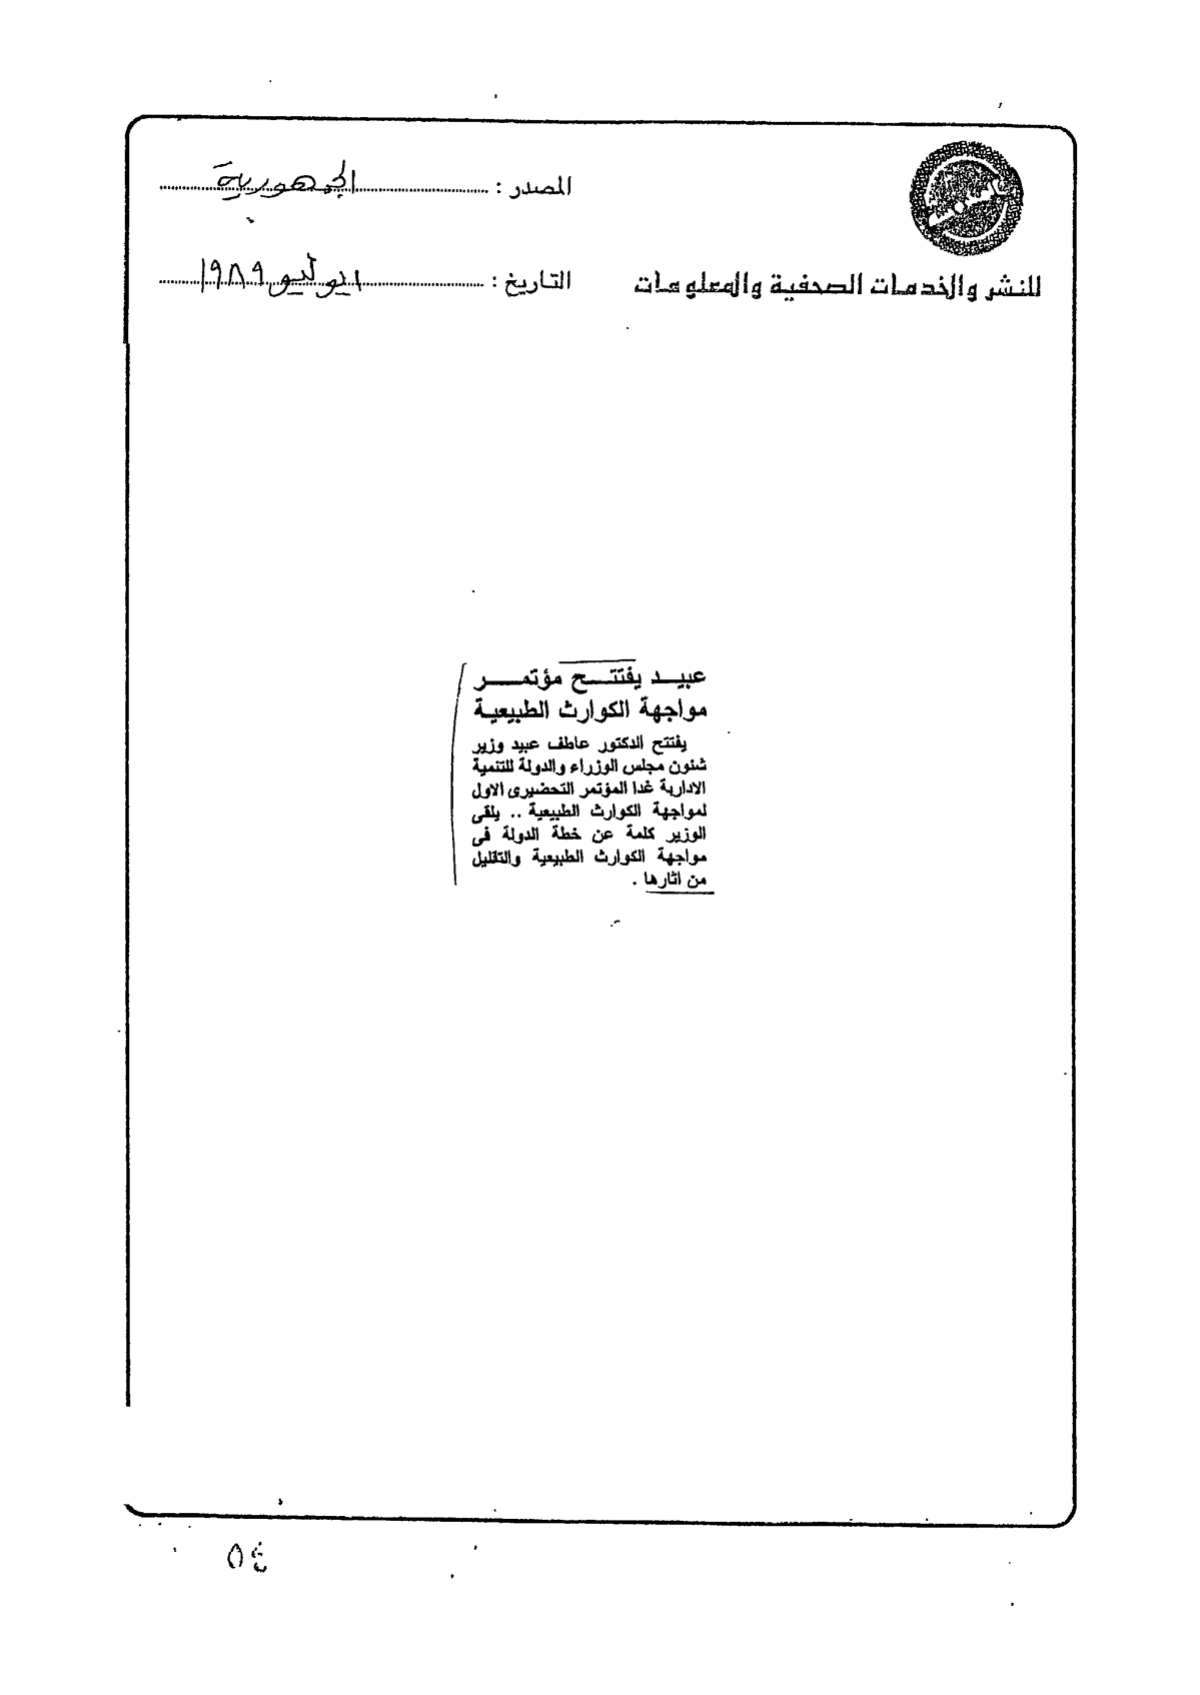 المصدر : الجمهورية
للنشر والخدمات الصحفية والمعلومات
التاريخ : ١ يوليو ١٩٨٩
عبيد يفتتح مؤتمر
مواجهة الكوارث الطبيعية
يفتتح الدكتور عاطف عبيد وزير
شئون مجلس الوزراء والدولة للتنمية
الادارية غدا المؤتمر التحضيرى الاول
لمواجهة الكوارث الطبيعية .. يلقى
الوزير كلمة عن خطة الدولة فى
مواجهة الكوارث الطبيعية والتقليل
من اثارها .
٥٤